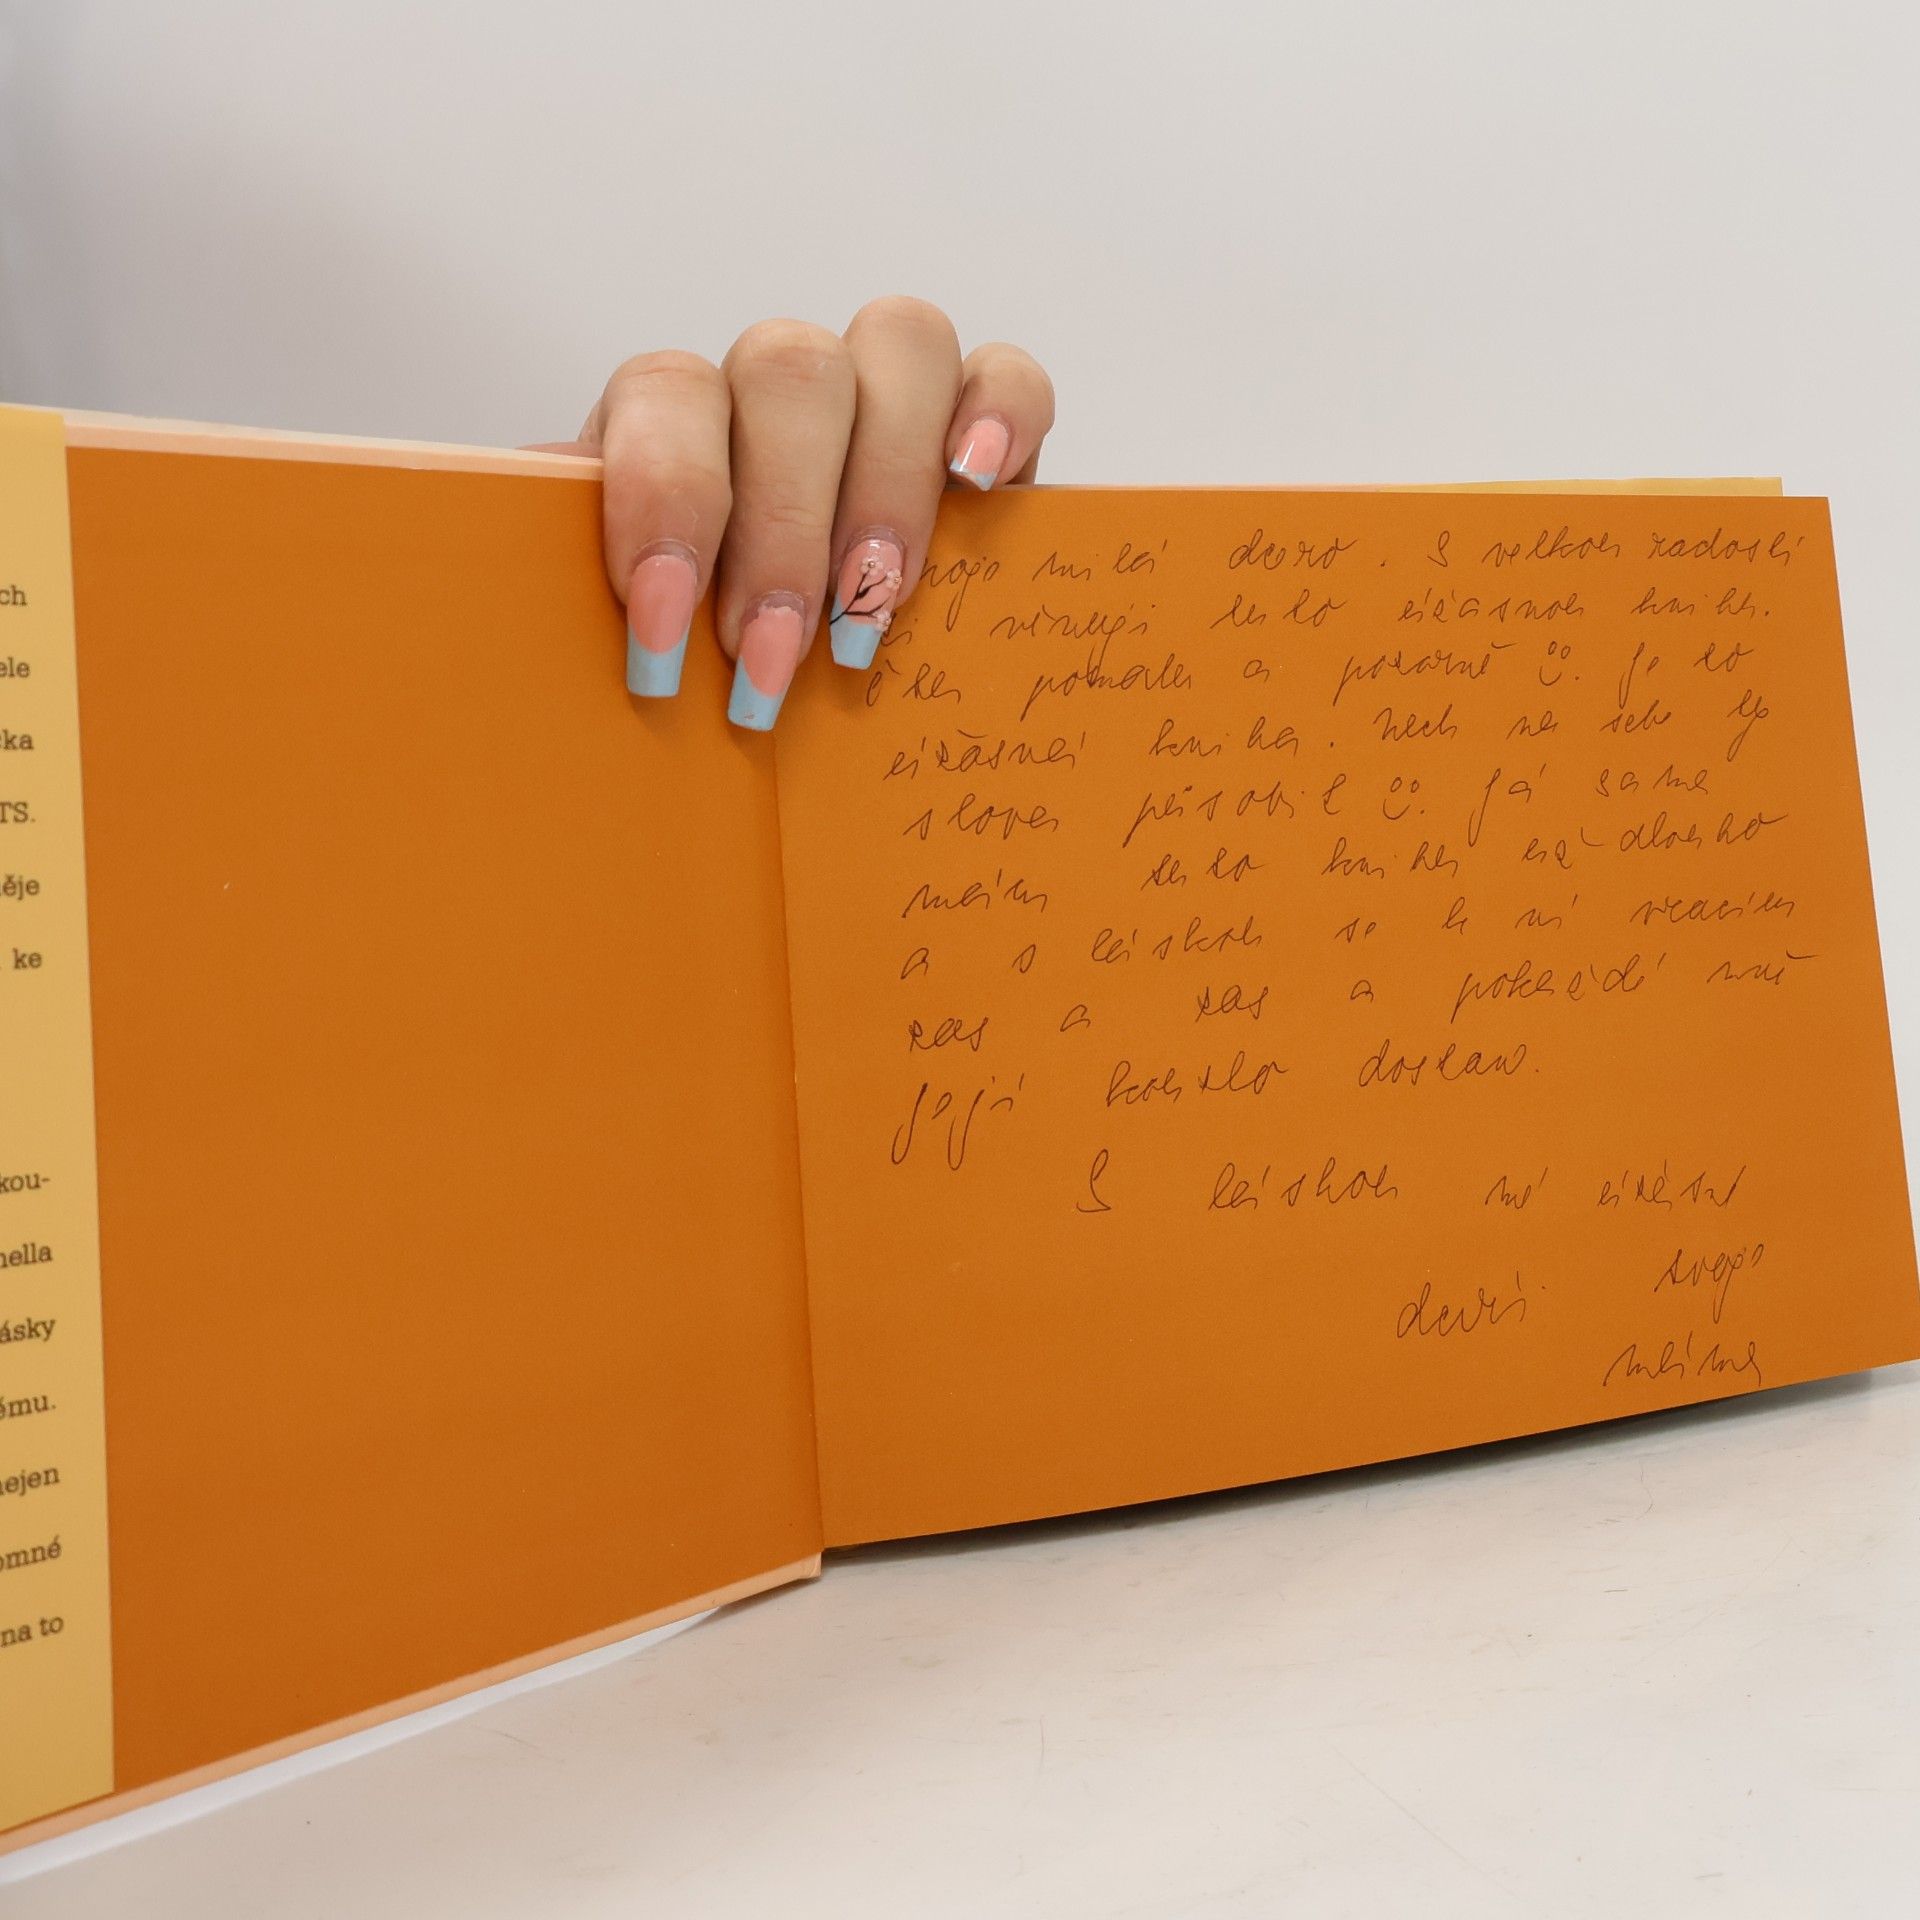 ch
ele
cka
TS.
ěje
ke
kou-
nella
ásky
ému.
nejen
omné
na to
moje milá dcero. S velkou radostí
ti věnuji tuto úžasnou knihu.
Čtu pomalu a pozorně ☺. Je to
úžasná kniha. Nech na sebe ty
slova působit ☺. Já sama
mám tuto knihu už dlouho
a s láskou se k ní vracím
zas a zas a pokaždé mně
její kouzlo dostane.
S láskou mé úžasné
dceři tvoje
máma